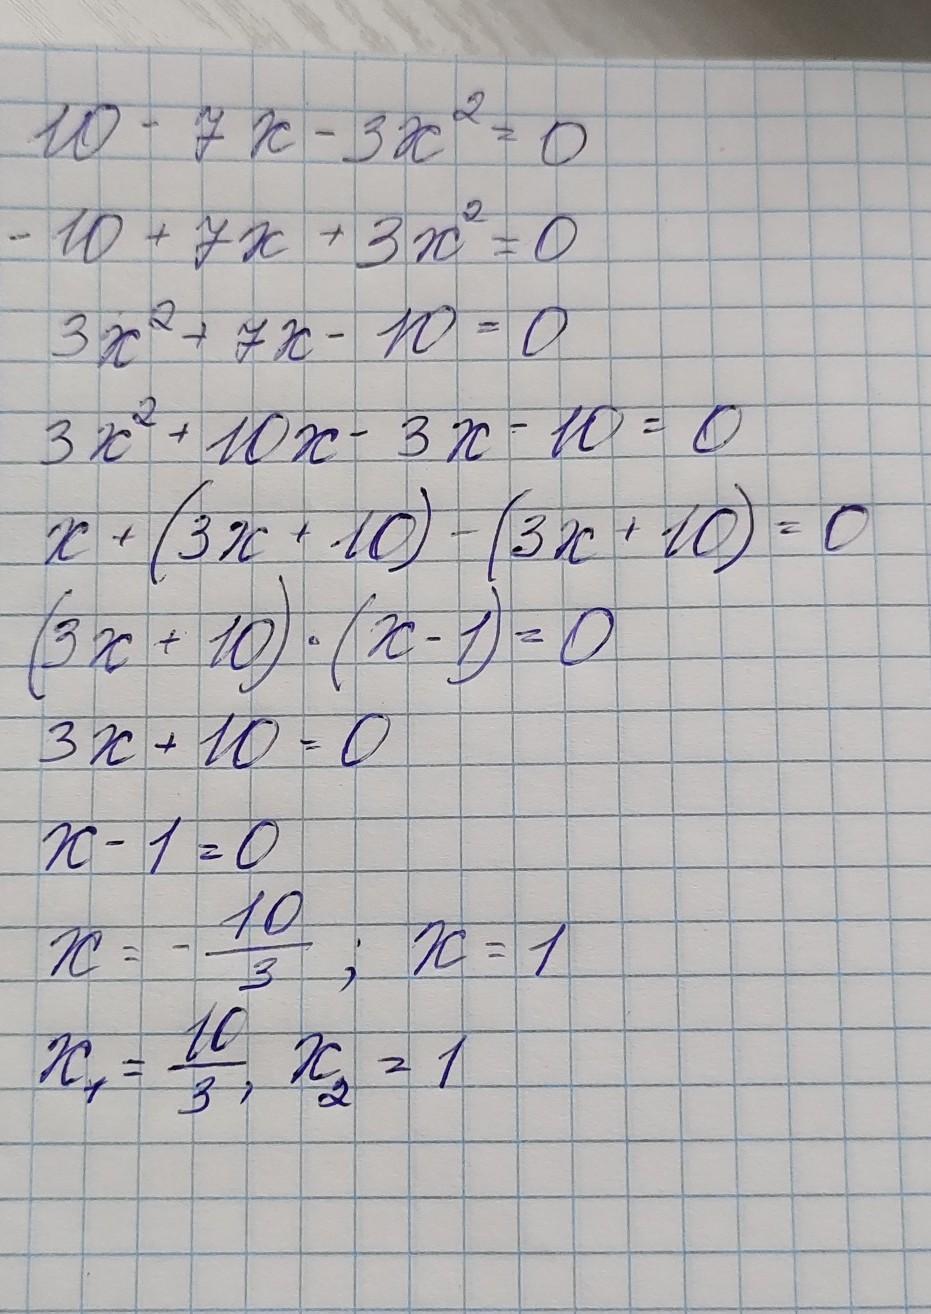 10 - 7x - 3x² = 0
- 10 + 7x + 3x² = 0
3x² + 7x - 10 = 0
3x² + 10x - 3x - 10 = 0
x + (3x + 10) - (3x + 10) = 0
(3x + 10) · (x - 1) = 0
3x + 10 = 0
x - 1 = 0
x = - 10/3 ; x = 1
x₁ = 10/3, x₂ = 1